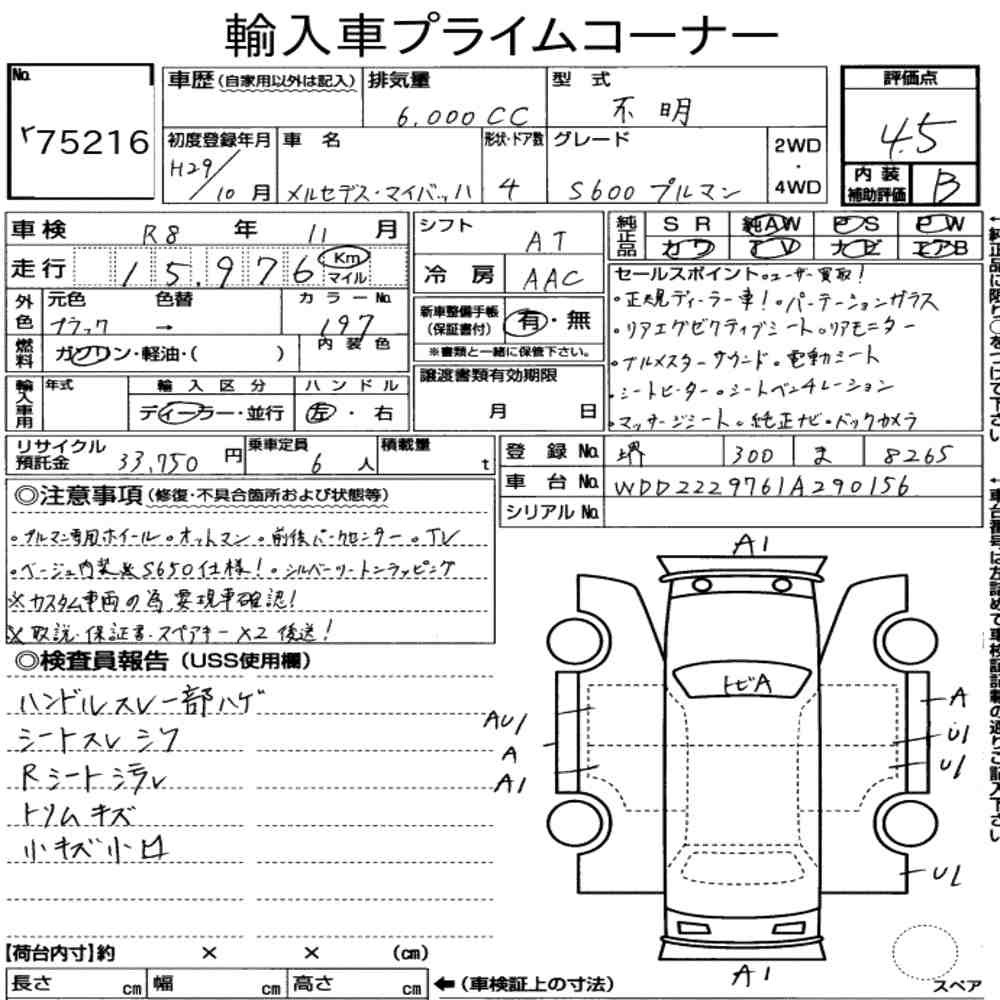 輸入車プライムコーナー
No.
r75216
車歴(自家用以外は記入)
排気量
6.000CC
型 式
不明
評価点
4.5
内装補助評価
B
初度登録年月
H29/10月
車 名
メルセデス・マイバッハ
形状・ドア数
4
グレード
S600 プルマン
2WD
・
4WD
車検 R8 年 11 月
走行 15.976 Km マイル
シフト AT
冷 房 AAC
純正品
SR 純AW PS PW
カワ TV ナビ エアB
外色
元色 ブラック
色替 →
カラーNo. 197
内装色
燃料 ガソリン・軽油・( )
新車整備手帳(保証書付)
有・無
※書類と一緒に保管下さい。
譲渡書類有効期限
月 日
輸入車用
年式
輸入区分
ディーラー・並行
ハンドル
左・右
セールスポイント。ユーザー買取!
。正規ディーラー車!。パーテーションガラス
。リアエグゼクティブシート。リアモニター
。ブルメスターサウンド。電動シート
。シートヒーター。シートベンチレーション
。マッサージシート。純正ナビ。バックカメラ
リサイクル預託金 33,750円
乗車定員 6人
積載量 t
登録No. 堺 300 ま 8265
車台No. WDD2229761A290156
シリアルNo.
◎注意事項(修復・不具合箇所および状態等)
。プルマン専用ホイール。オットマン。前後パークセンサー。TV
。ベージュ内装 ※S650仕様!。シルバーツートンラッピング
※カスタム車両の為要現車確認!
※取説・保証書・スペアキー×2後送!
◎検査員報告(USS使用欄)
ハンドルスレ一部ハゲ
シートスレシワ
Rシート汚レ
トリムキズ
小キズ小凹
A1
トビA
AU1
A
A1
A
U1
U1
U1
A1
スペア
【荷台内寸】約 × × (cm)
長さ cm 幅 cm 高さ cm ←(車検証上の寸法)
←純正品に限り○をつけて下さい
←車台番号は左詰めで車検証記載の通りご記入下さい